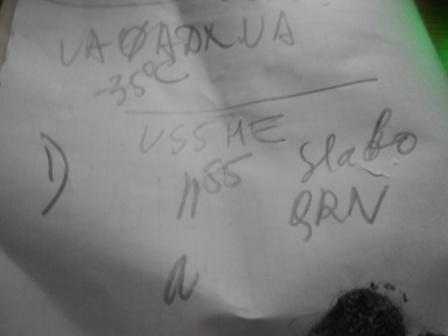 UA0ADX.UA
-35°C
US5HE
1) 11⁵⁵ Slabo
QRN
a